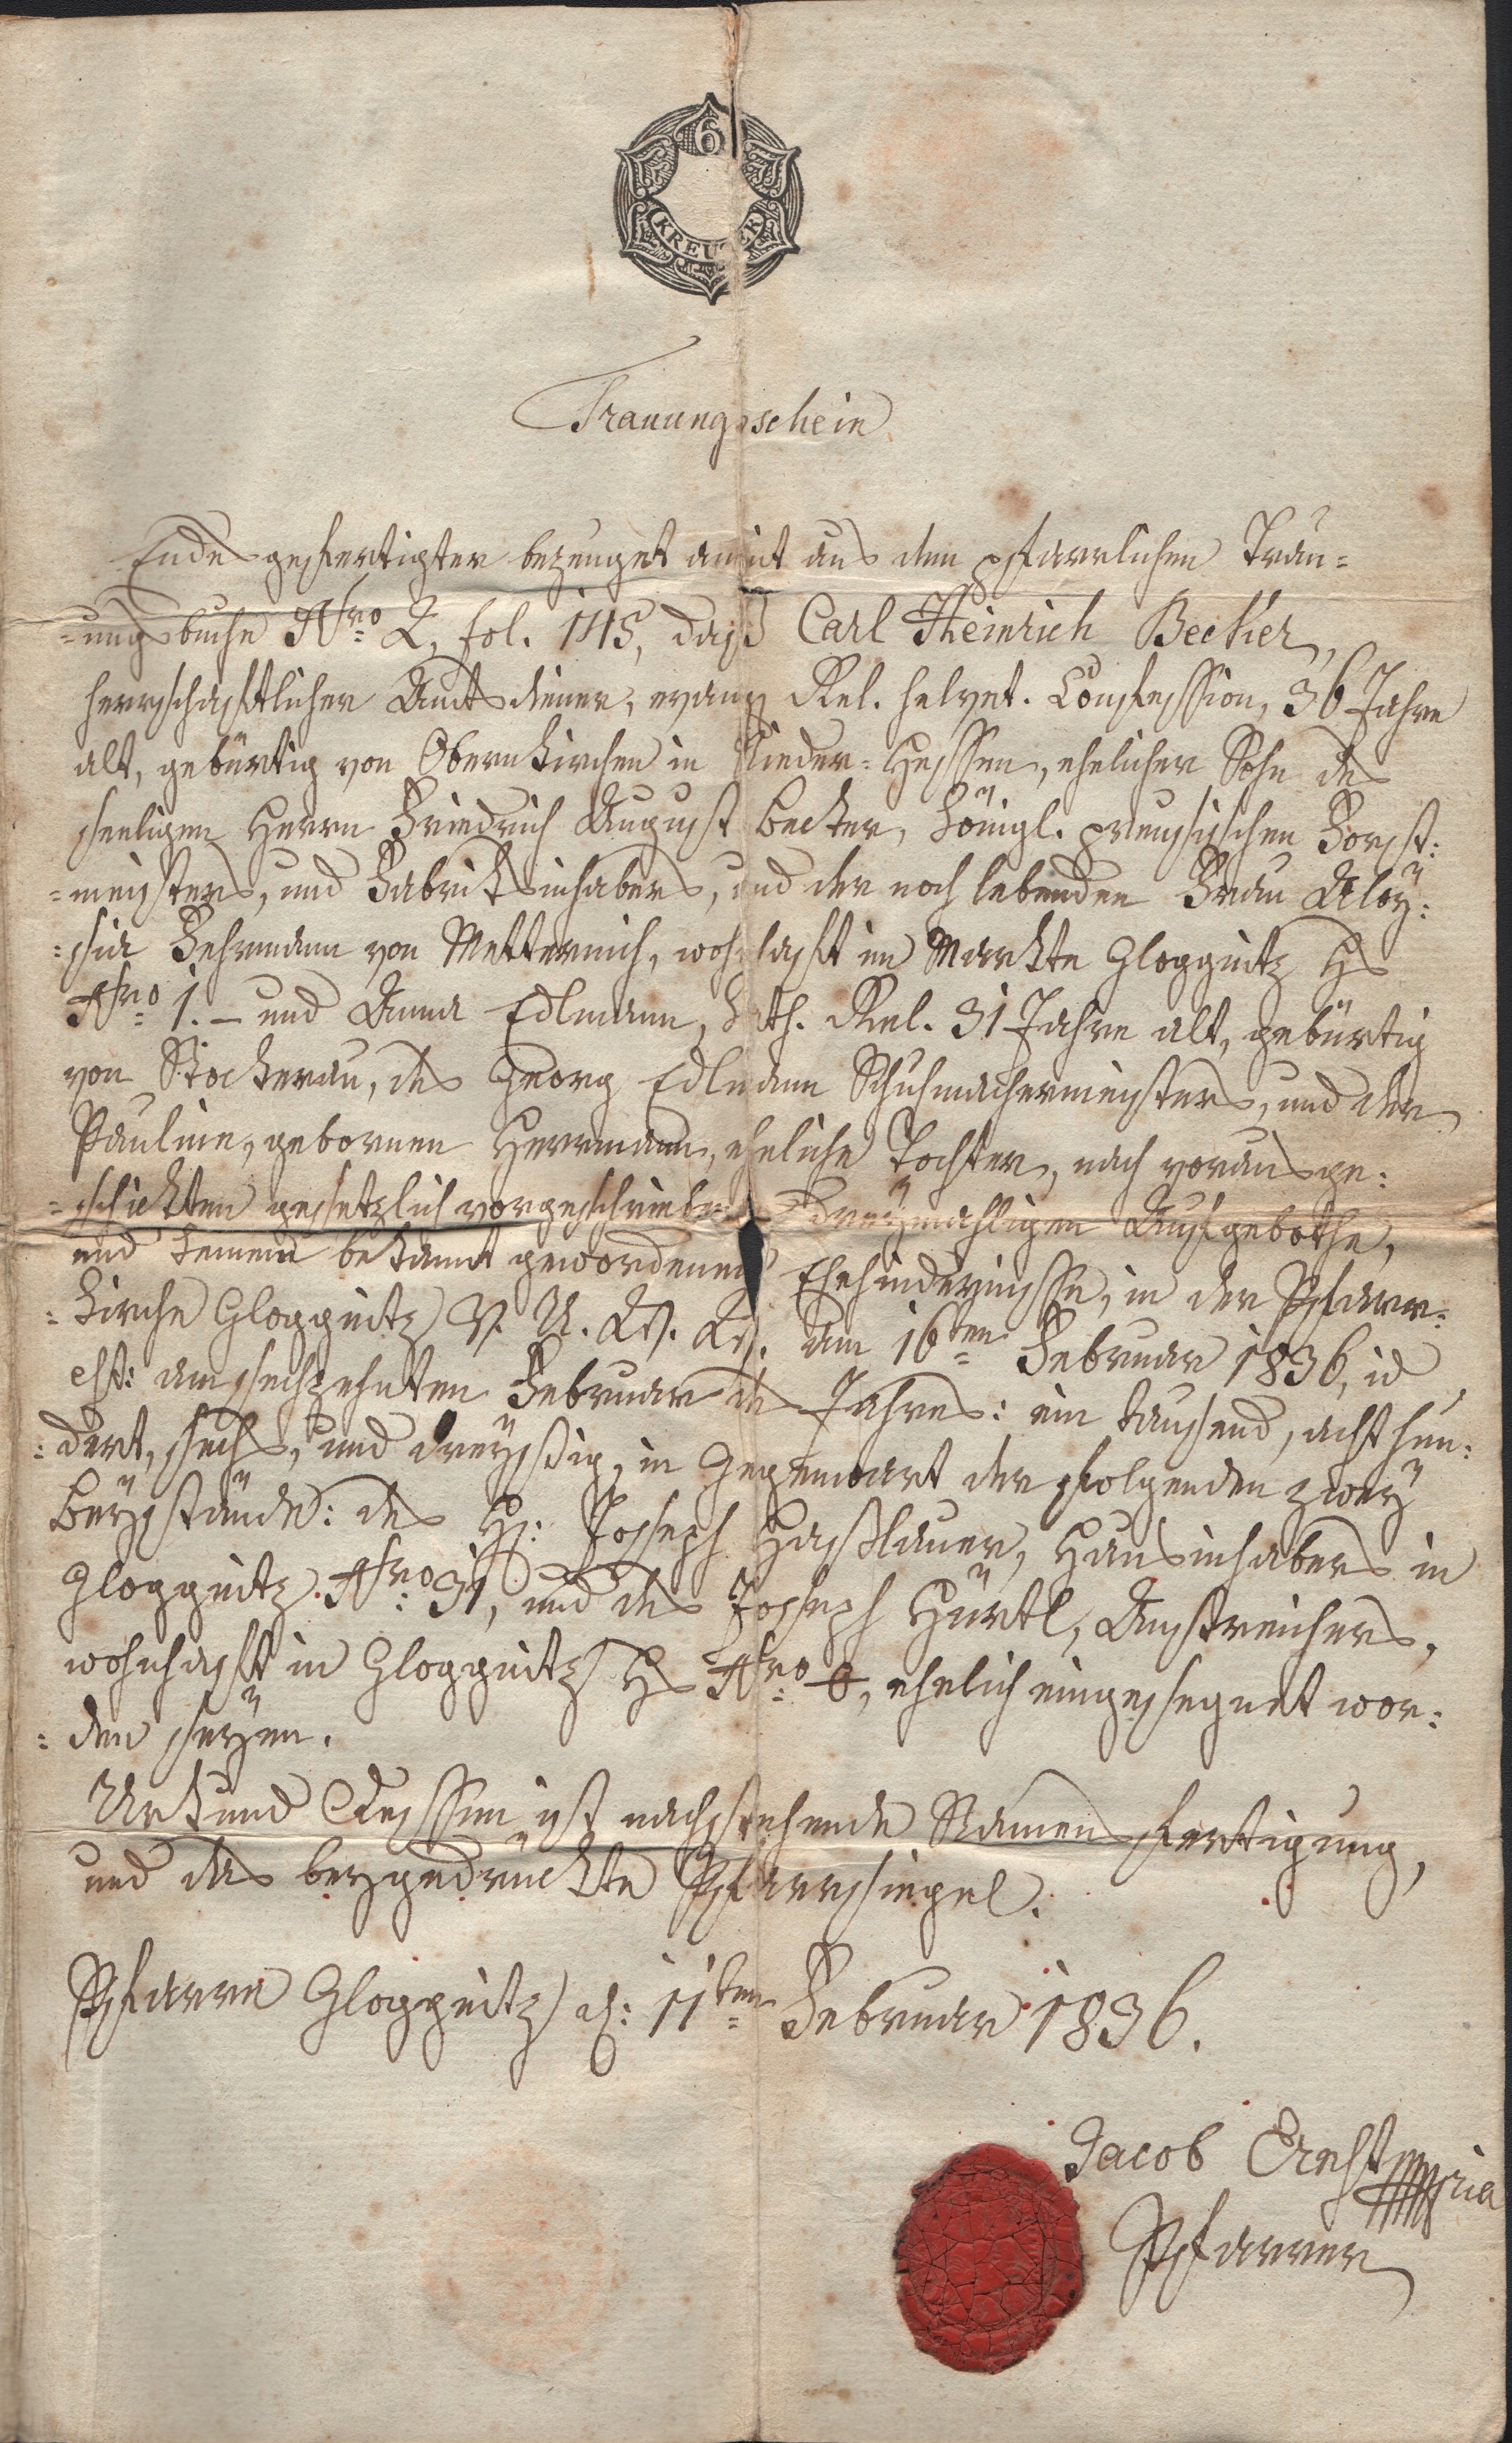 6
KREUZER
Trauungsschein
Endesgefertigter bezeuget amit aus dem pfarrlichen Trau=
=ungsbuche Nro. 2, fol. 145, daß Carl Heinrich Becker,
herrschaftlicher Amtsdiener, evang Rel. helvet. Confession, 36 Jahre
alt, gebürtig von Obernkirchen in Nieder=Hessen, ehelicher Sohn des
seeligen Herrn Friedrich August Becker, königl. preusischen Forst:
=meisters, und Fabriksinhabers, und der noch lebenden Frau Aloy:
=sia Fehrmann von Metternich, wohnhaft im Markte Gloggnitz Hs
Nro 1. – und Anna Edlmann, kath. Rel. 31 Jahre alt, gebürtig
von Stockerau, des Georg Edlmann Schuhmachermeisters, und der
Pauline, gebornen Herrmann, eheliche Tochter, nach vorausge:
=schickten gesetzlich vorgeschrieben dreymahligen Aufgebothe,
und keinem bekannt gewordenen Ehehindernisse, in der Pfarr=
=kirche Gloggnitz V. U. W. W. am 16ten Februar 1836, id
est: am sechzehnten Februar des Jahres: ein tausend, acht hun:
:dert, sechs, und dreyßig, in Gegenwart der folgenden zwey
Beystände: des H: Joseph Haßlauer, Hausinhabers in
Gloggnitz Nro: 31, und des Joseph Hürtl, Anstreichers,
wohnhaft in Gloggnitz Hs Nro: 6, ehelich eingesegnet wor:
:den seyen.
Urkund dessen ist nachstehende Namensfertigung,
und das beygedruckte Pfarrsiegel.
Pfarre Gloggnitz d: 17ten Februar 1836.
Jacob Ernst mpria
Pfarrer